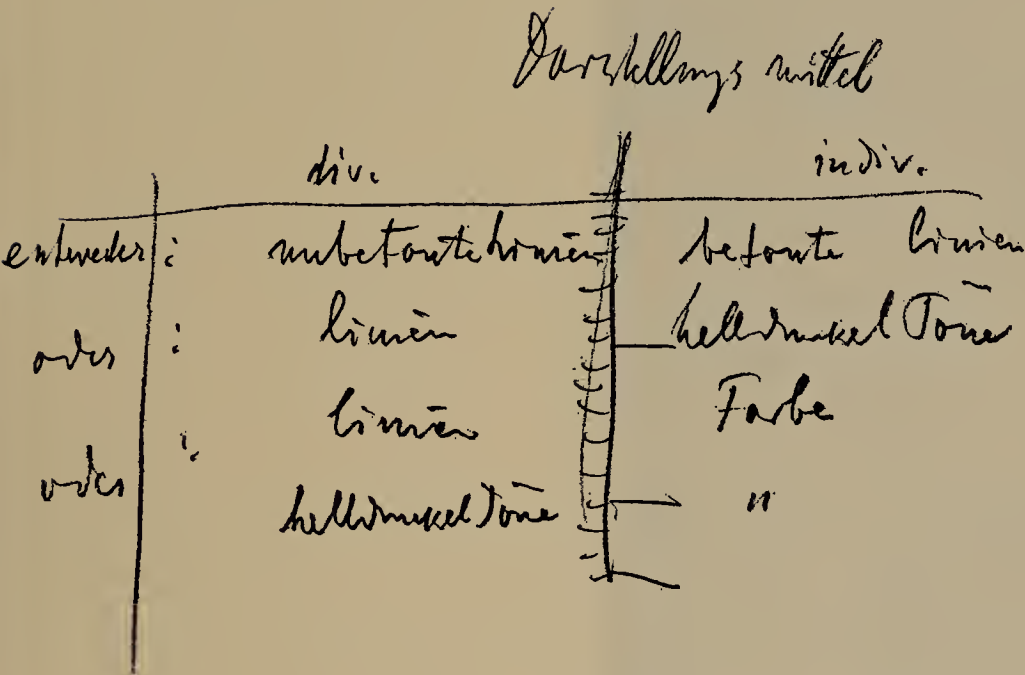 Darstellungsmittel
div. indiv.
entweder : unbetonte Linien betonte Linien
oder : Linien helldunkel Töne
: Linien Farbe
oder helldunkel Töne "